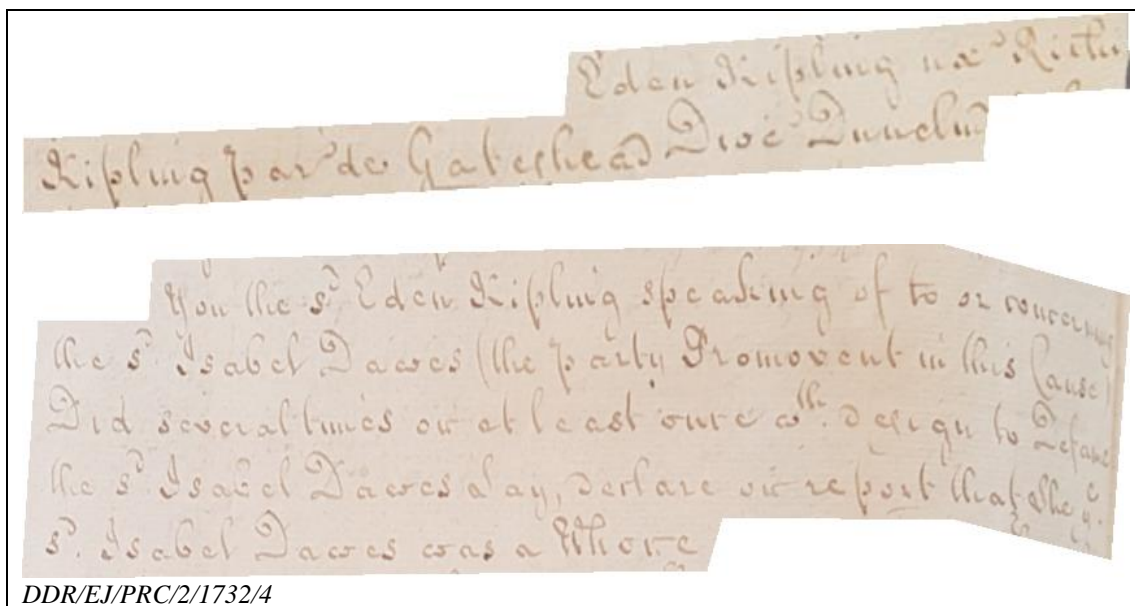 Eden Kipling ux Richi
Kipling par de Gateshead Dioc Dunelm
You the sd Eden Kipling speaking of to or concerning
the sd Isabel Dawes (the party Promovent in this Cause)
Did several times or at least once wth design to Defame
the sd Isabel Dawes say, declare or report that she ye
sd Isabel Dawes was a Whore
DDR/EJ/PRC/2/1732/4